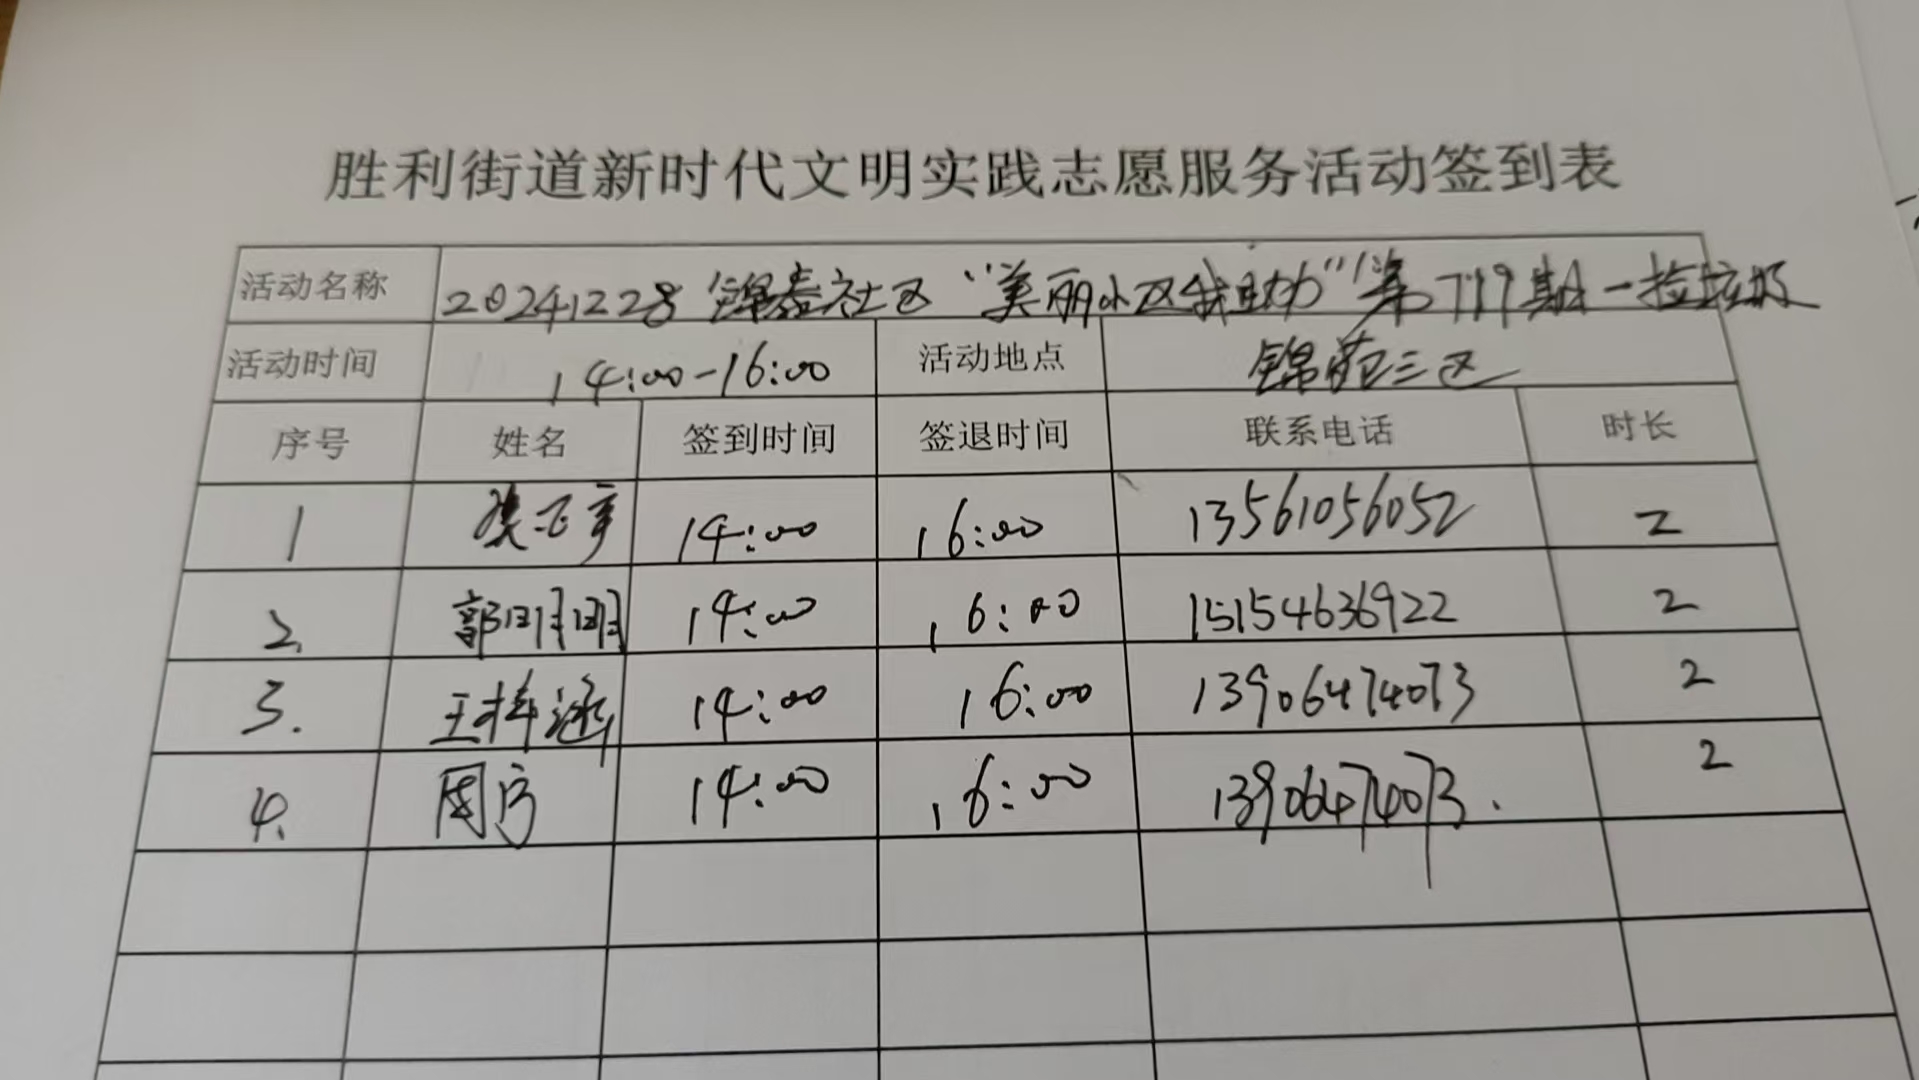 胜利街道新时代文明实践志愿服务活动签到表
活动名称 20241228锦泰社区“美丽小区我助力”第719期—捡垃圾
活动时间 14:00-16:00 活动地点 锦苑三区
序号 姓名 签到时间 签退时间 联系电话 时长
1 14:00 16:00 13561056052 2
2. 郭明明 14:00 16:00 15154636922 2
3. 王梓涵 14:00 16:00 13906474073 2
4. 周 14:00 16:00 13906474073. 2